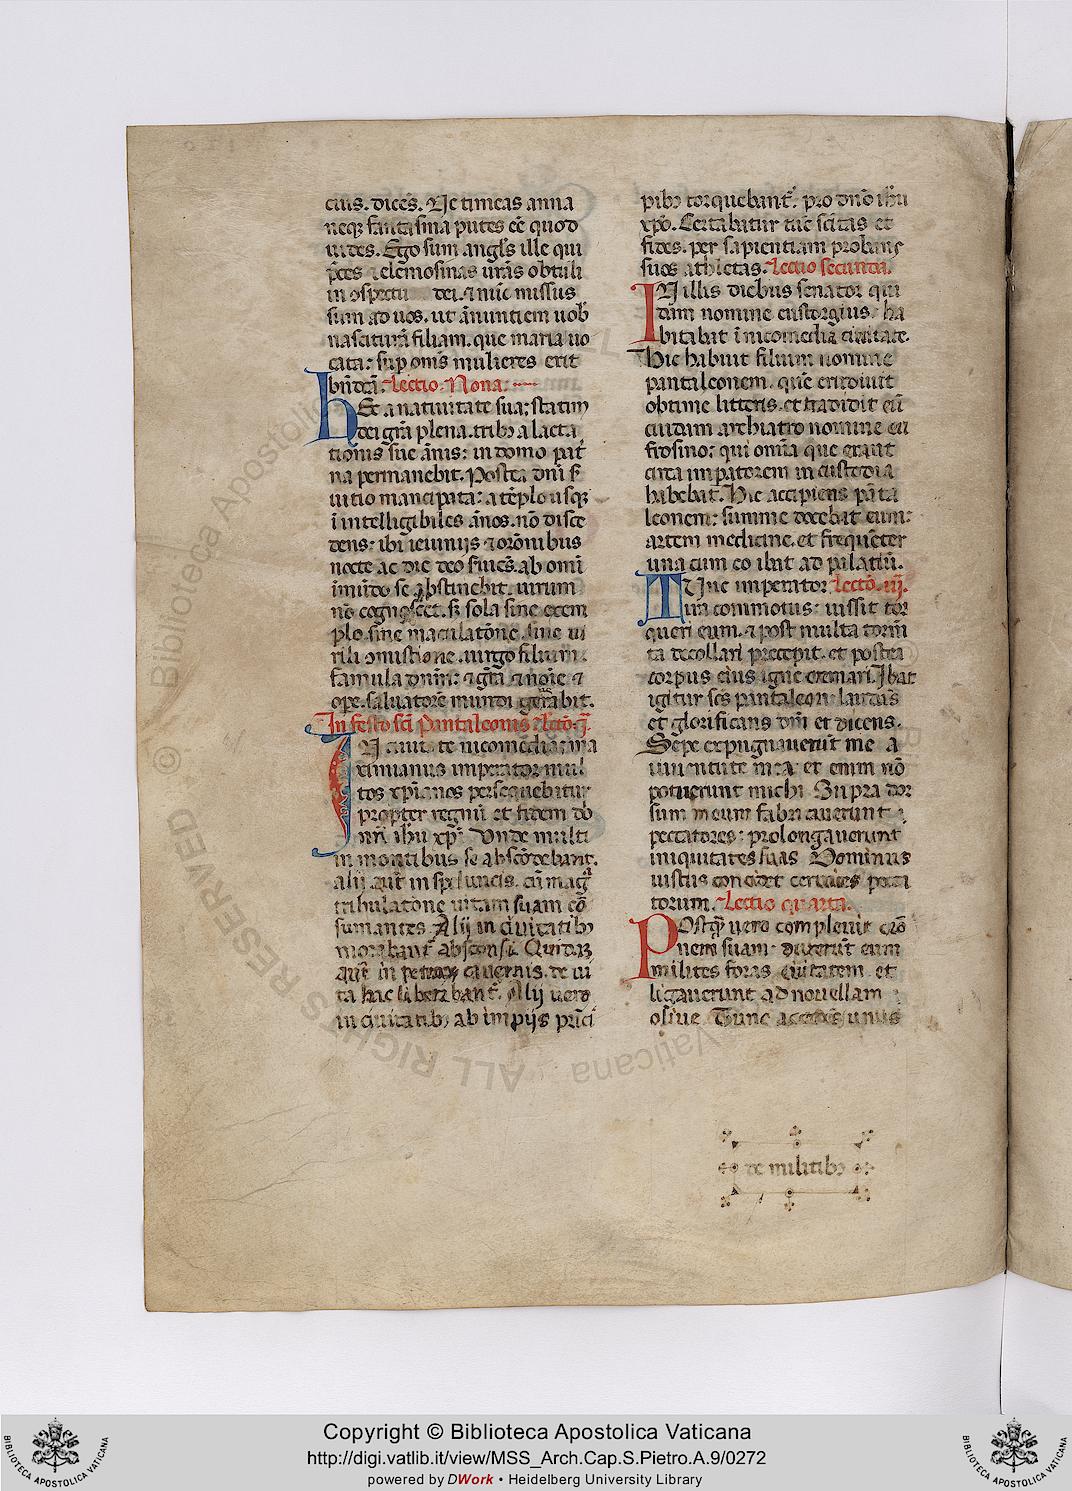 cius. dices. Ne timeas anna
neq; fantasma putes eē quod
uides. Ego sum angl's ille qui
p̄ces ⁊ elemosinas urās obtuli
in ꝯspectu dei. ⁊ nūc missus
sum ad uos. ut ānuntiem uob
nasciturā filiam. que maria uo
cata: sup om̄s mulieres erit
bn̄dcā. Lectio Nona.
hEc a natiuitate sua: statim
dei gr̄a plena. tribȝ a lacta
tionis sue ānis: in domo pat̄
na permanebit. Postea dn̄i s̄
uitio mancipata: a tēplo usq;
ī intelligibiles ānos. nō disce
dens: ibi ieiunijs ⁊ orōnibus
nocte ac die deo s̄uies. ab omī
īmūdo se abstinebit. uirum
nō cognoscet. s; sola sine exem
plo. sine maculatōne. sine ui
rili ꝯmistione. uirgo filium.
famula dnm̄: ⁊ gr̄a ⁊ noīe ⁊
ope. saluatorē mundi gen̄abit.
In festo sc̄i Pantaleonis. Lectō. j̄.
IN ciuitate nicomedia: ma
ximianus imperator mul
tos xp̄ianos persequebitur
propter regnū et fidem do
mi ihū xp̄i. Vnde multi
in montibus se abscōdebant.
alij. aut̄ in speluncis. cū maḡ
tribulatōne uitam suam cō
sumantes. Alij in ciuitatibȝ
morabant̄ absconsi. Quidaȝ
aut̄ in petrarȝ cauernis. de ui
ta hac liberabant̄. Alij uero
in ciuitatibȝ ab impijs prīci
pibȝ torquebant̄. pro dnō ihū
xp̄o. Certabatur tūc sc̄itas et
fides. per sapientiam probans
suos athletas. Lectio secunda.
IN illis diebus senator qui
dam nomine eustorgius. ha
bitabat ī nicomedia ciuitate.
Hic habuit filium nomine
pantaleonem. quē erudiuit
obtime litteris. et tradidit eū
cuidam archiatro nomine eu
frosino: qui omīa que erant
circa impatorem in custodia
habebat. Hic accipiens pāta
leonem: summe docebat eum:
artem medicine. et frequēter
una cum eo ibat ad palatiū.
TVnc imperator Lectō. iij.
irim commotus: iussit tor
queri eum. ⁊ post multa torm̄
ta decollari precepit. et postea
corpus eius igne cremari. Ibat
igitur sc̄s pantaleon laudās
et glorificans dm̄ et dicens.
Sepe expugnauerūt me a
iuuentute mea et enim nō
potuerunt michi Supra dor
sum meum fabricauerunt
peccatores: prolongauerunt
iniquitates suas Dominus
iustus concidet ceruices pecca
torum. Lectio quarta.
POstq̄ uero compleuit orō
nem suam. duxerūt eum
milites foras ciuitatem. et
ligauerunt ad nouellam
oliue. Tunc accedēs unus
de militibȝ
Copyright © Biblioteca Apostolica Vaticana
http://digi.vatlib.it/view/MSS_Arch.Cap.S.Pietro.A.9/0272
powered by DWork • Heidelberg University Library
BIBLIOTECA APOSTOLICA VATICANA
BIBLIOTECA APOSTOLICA VATICANA
© Biblioteca Apostolica Vaticana
ALL RIGHTS RESERVED